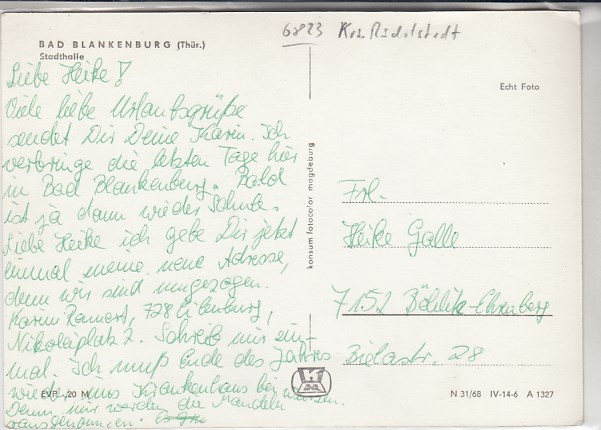 6823 Krs. Rudolstadt
BAD BLANKENBURG (Thür.)
Stadthalle
Echt Foto
Liebe Heike!
Viele liebe Urlaubsgrüße
sendet Dir Deine Karin. Ich
verbringe die letzten Tage hier
in Bad Blankenburg. Bald
ist ja dann wieder Schule.
Liebe Heike ich gebe Dir jetzt
einmal meine neue Adresse,
denn wir sind umgezogen.
Karin 728 Eilenburg,
Nikolaiplatz 2. Schreib mir ein-
mal. Ich muß Ende des Jahres
wieder ins Krankenhaus
Denn, mir werden die Mandeln
rausgenommen.
konsum fotocolor magdeburg
Frl.
Heike Galle
7152 Böhlitz-Ehrenberg
Bielastr. 28
EVP -,20 M
N 31/68 IV-14-6 A 1327